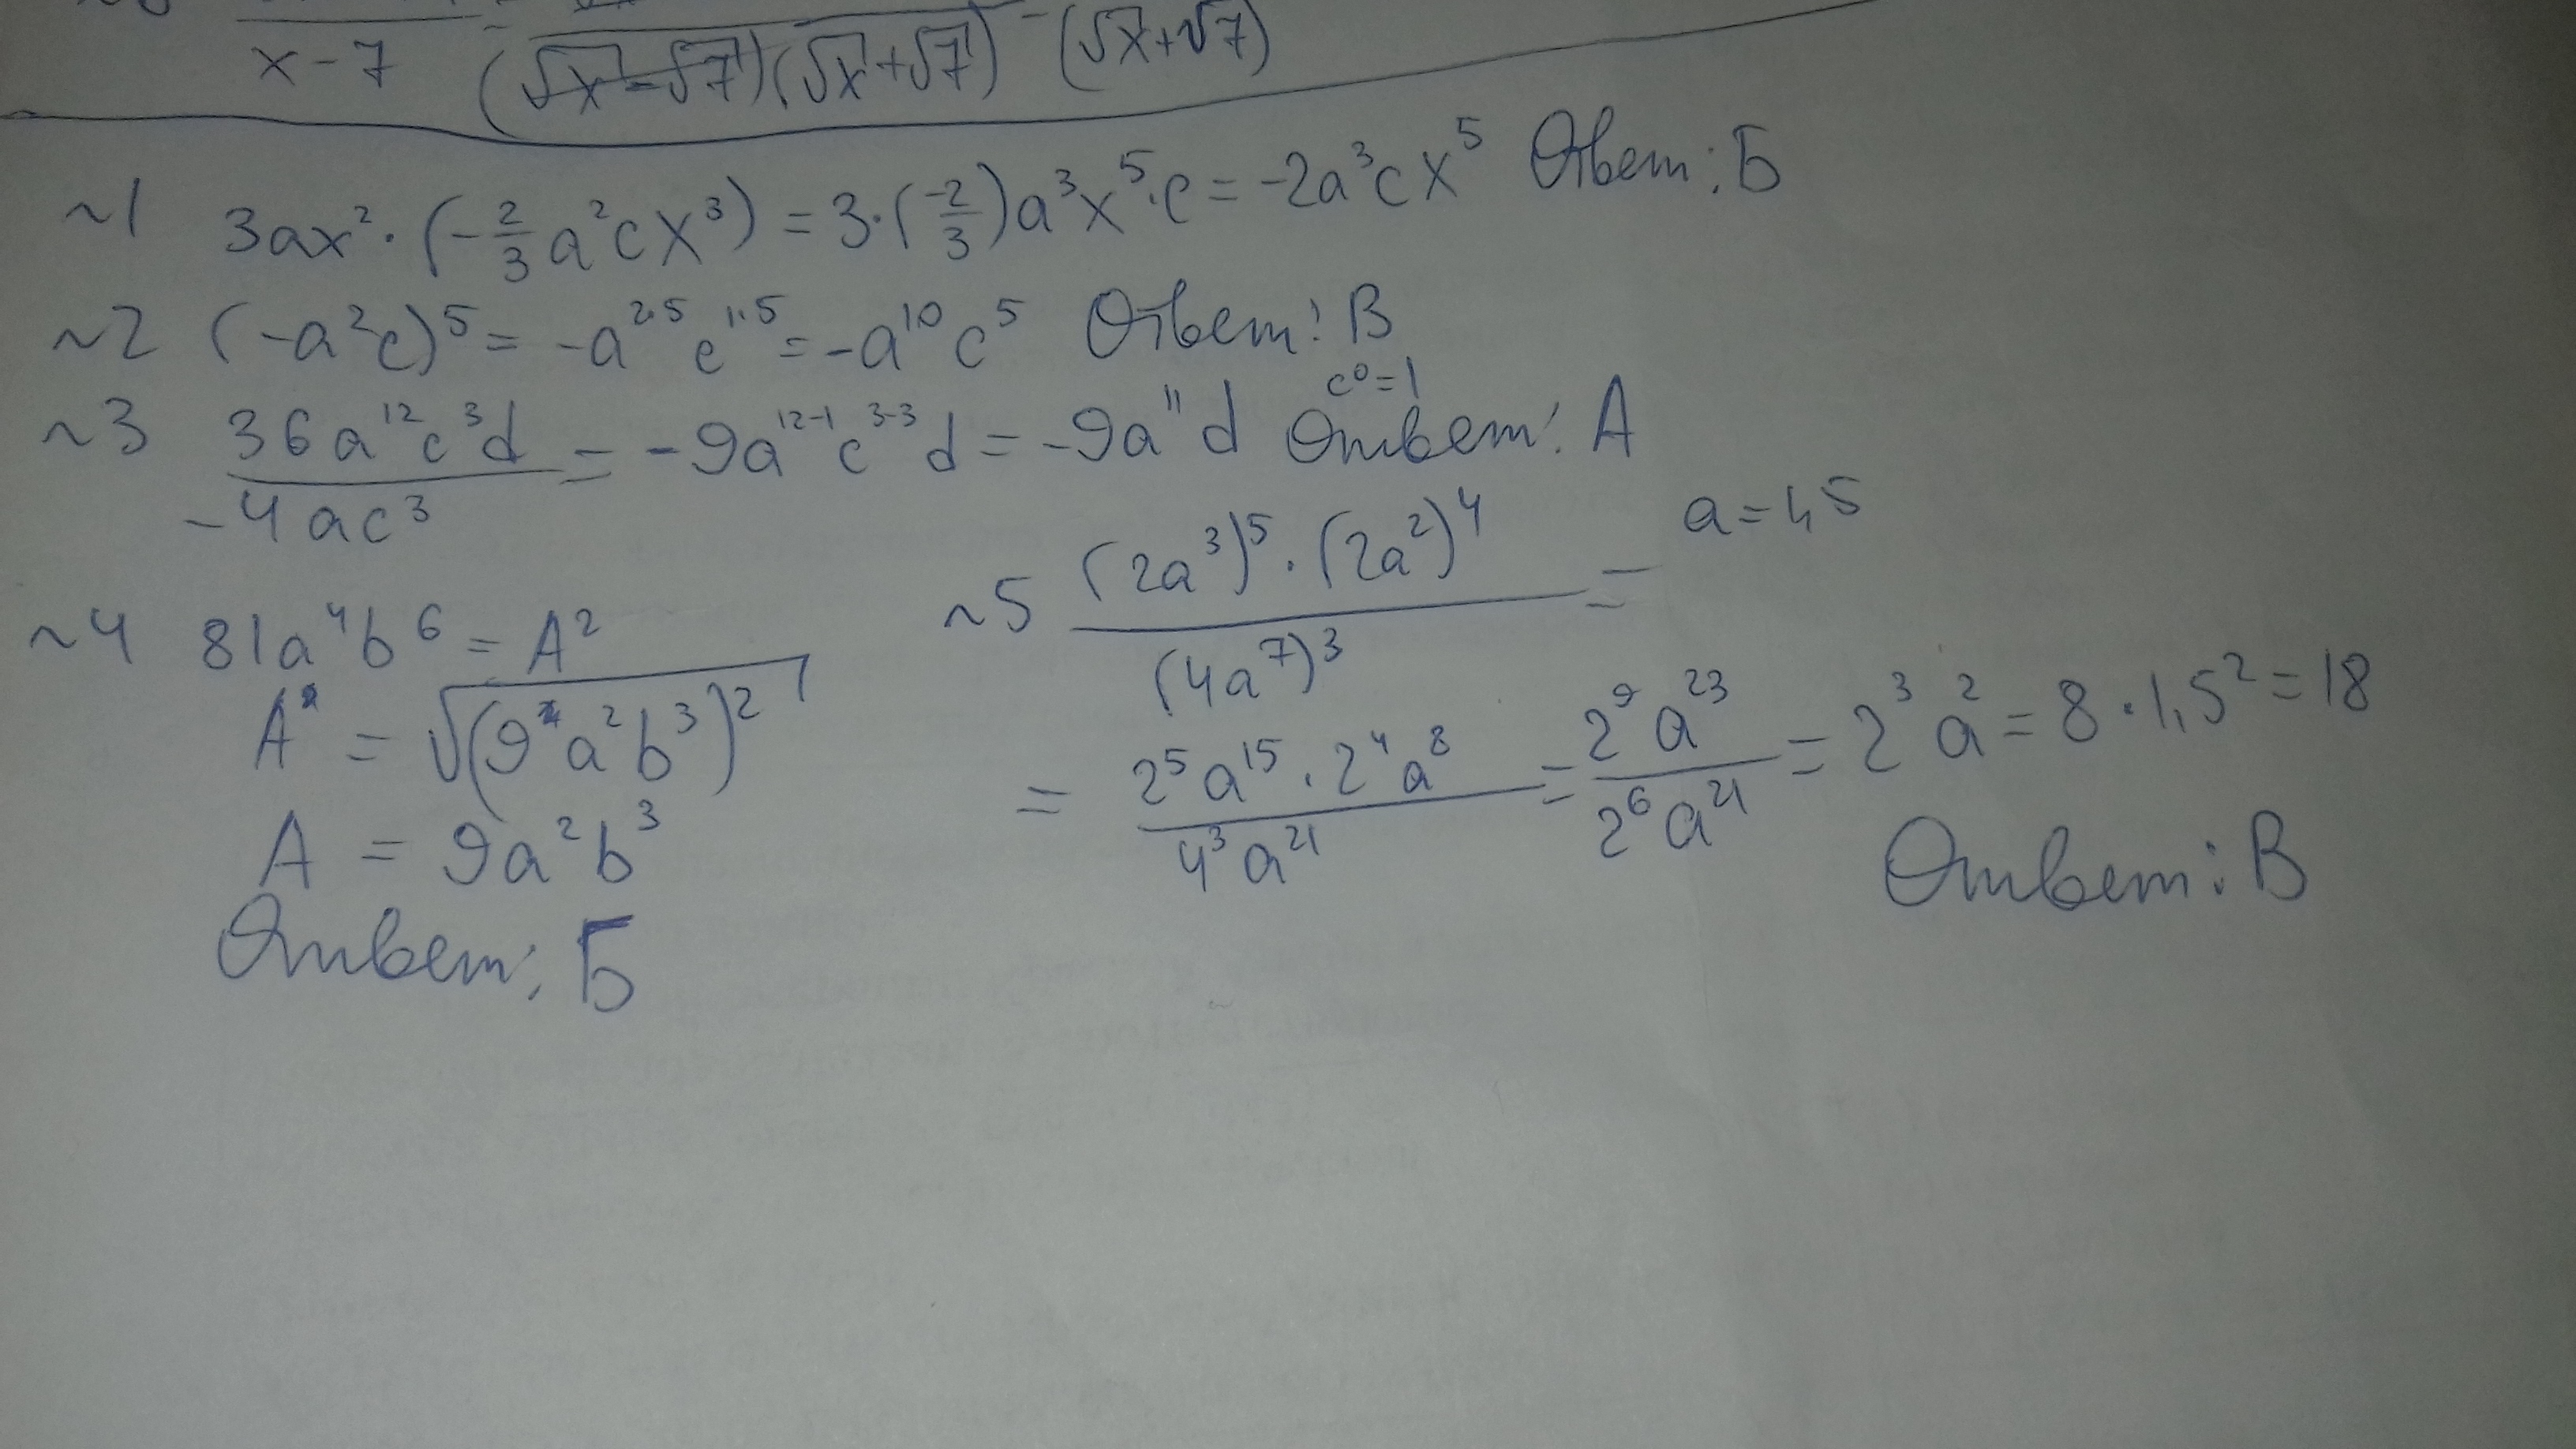 x-7 (√x-√7)(√x+√7) (√x+√7)
~1 3ax²·(-2/3a²cx³)=3·(-2/3)a³x⁵·c=-2a³cx⁵ Ответ: Б
~2 (-a²c)⁵=-a²·⁵c¹·⁵=-a¹⁰c⁵ Ответ: В
c⁰=1
~3 36a¹²c³d/-4ac³=-9a¹²⁻¹c³⁻³d=-9a¹¹d Ответ: А
~4 81a⁴b⁶=A²
A=√(9a²b³)²
A=9a²b³
Ответ: Б
~5 (2a³)⁵·(2a²)⁴/(4a⁷)³= a=1,5
=2⁵a¹⁵·2⁴a⁸/4³a²¹=2⁹a²³/2⁶a²¹=2³a²=8·1,5²=18
Ответ: В